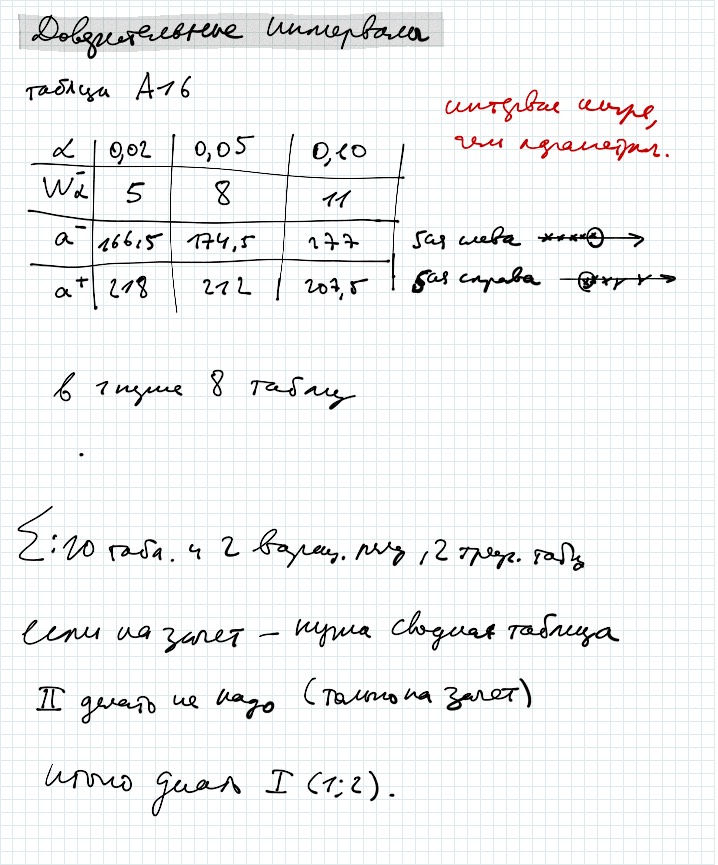 Доверительные интервалы
таблица А16
интервал шире,
чем параметрич.
α 0,02 0,05 0,10
Wα⁻ 5 8 11
a⁻ 166,5 174,5 177 5ая слева
a⁺ 218 212 207,5 5ая справа
в 8 таблиц
Σ: 10 табл. и 2 вариац. ряд, 2 табл
если на зачет – нужна сводная таблица
II делать не надо (только на зачет)
делать I (1; 2).